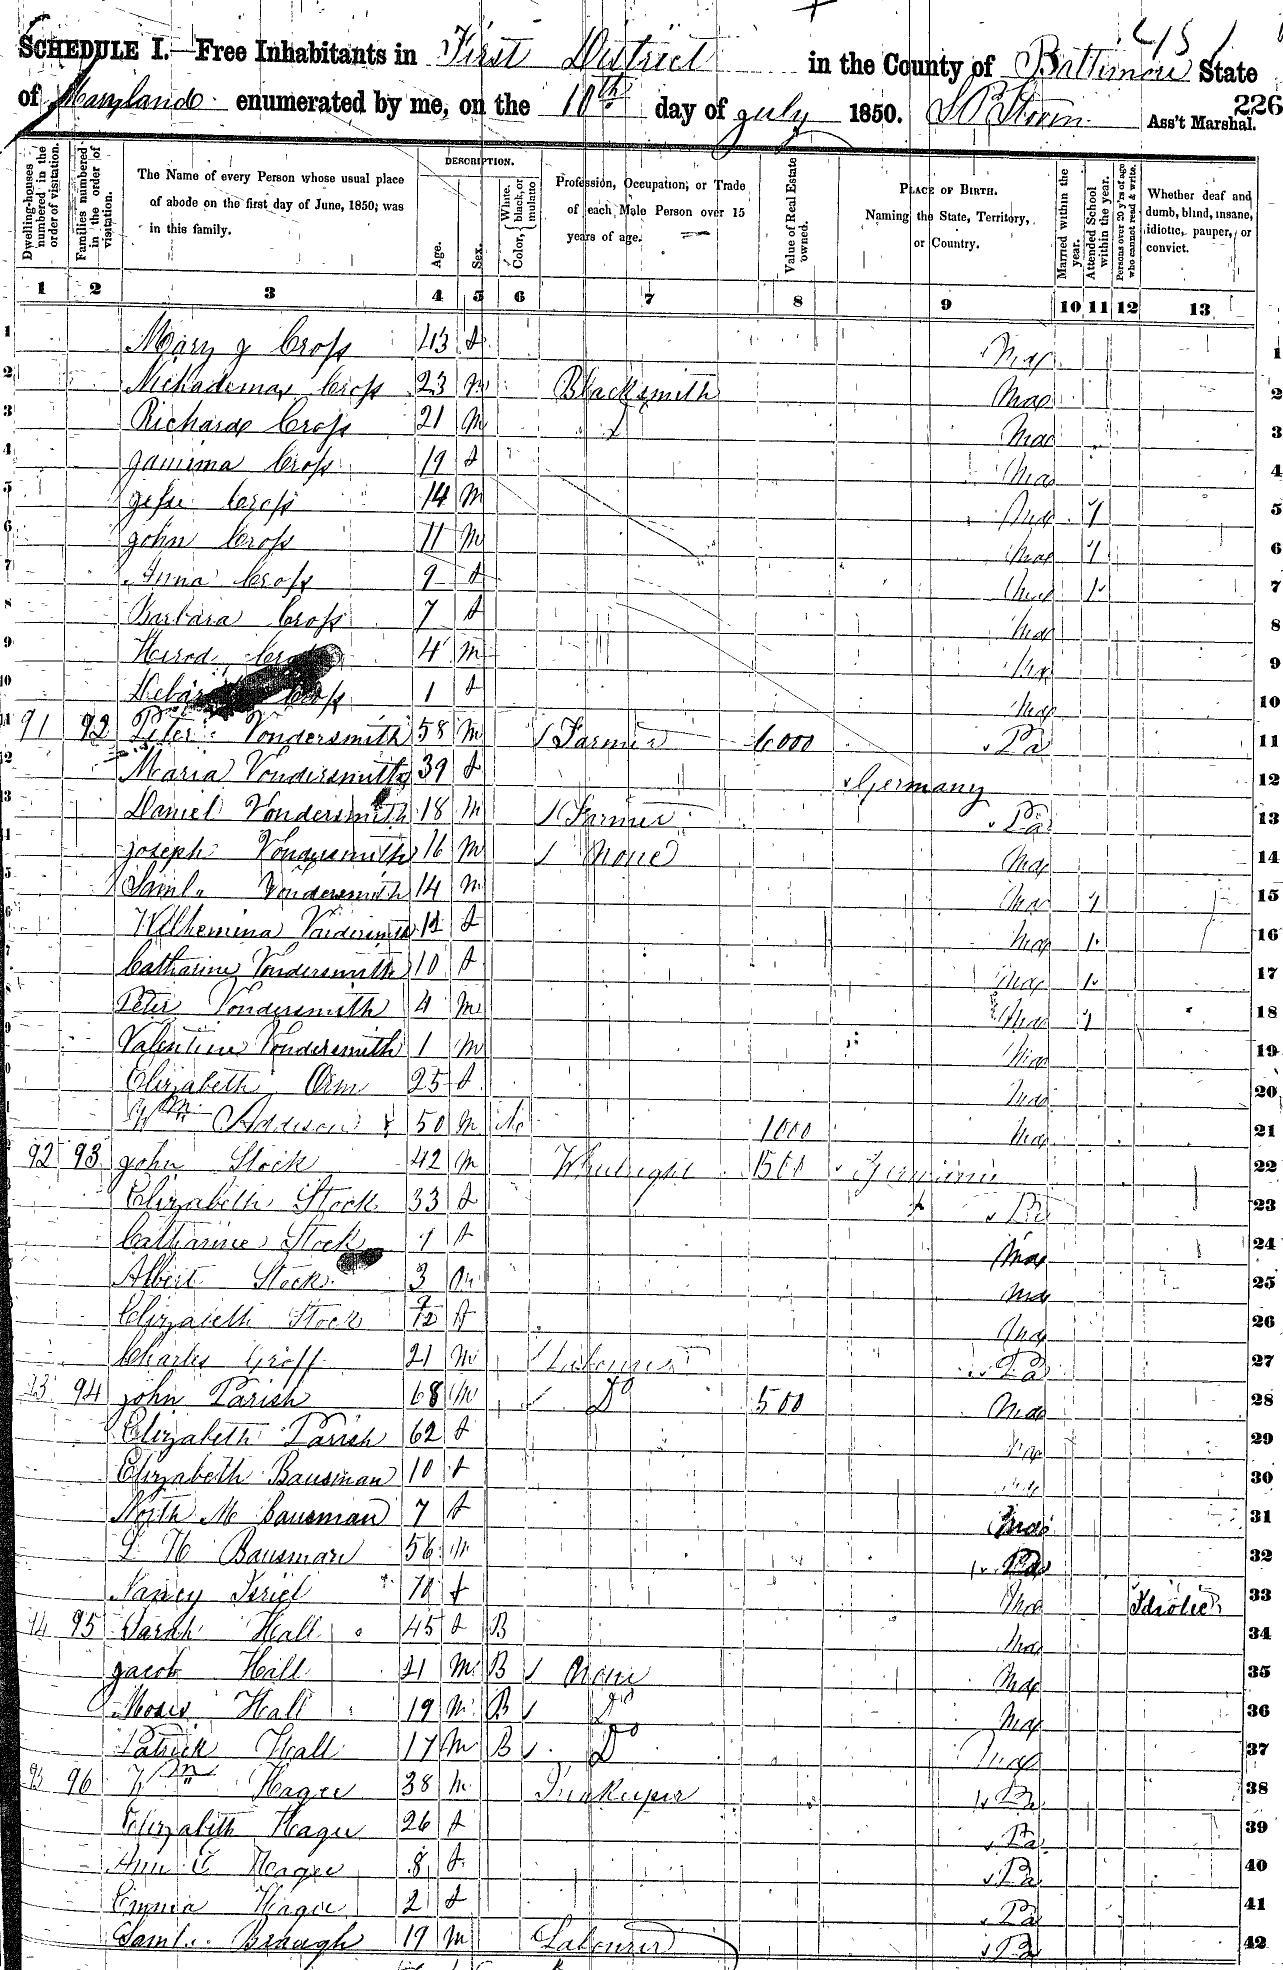 451
SCHEDULE I.—Free Inhabitants in First District in the County of Baltimore State
of Maryland enumerated by me, on the 10th day of July 1850. Ass't Marshal. 226
Dwelling-houses numbered in the order of visitation.
Families numbered in the order of visitation.
The Name of every Person whose usual place of abode on the first day of June, 1850, was in this family.
DESCRIPTION.
Age.
Sex.
Color, { White, black, or mulatto
Profession, Occupation, or Trade of each Male Person over 15 years of age.
Value of Real Estate owned.
PLACE OF BIRTH. Naming the State, Territory, or Country.
Married within the year.
Attended School within the year.
Persons over 20 y'rs of age who cannot read & write.
Whether deaf and dumb, blind, insane, idiotic, pauper, or convict.
1 2 3 4 5 6 7 8 9 10 11 12 13
1 Mary J Cross 43 f Md 1
2 Cross 23 m Blacksmith Md 2
3 Richard Cross 21 m Md 3
4 Jamima Cross 19 f Md 4
5 Jesse Cross 14 m Md 1 5
6 John Cross 11 m Md 1 6
7 Anna Cross 9 f Md 1 7
8 Barbara Cross 7 f Md 8
9 4 m Md 9
10 Cross 1 f Md 10
91 92 Peter Vondersmith 58 m Farmer 6000 Pa 11
Maria Vondersmith 39 f Germany 12
Daniel Vondersmith 18 m Farmer Pa 13
Joseph Vondersmith 16 m None Md 14
Saml. Vondersmith 14 m Md 1 15
Wilhemina Vondersmith 12 f Md 1 16
Catharine Vondersmith 10 f Md 1 17
Peter Vondersmith 4 m Md 1 18
Valentine Vondersmith 1 m Md 19
Elizabeth Orm 25 f Md 20
Wm Addison 50 m 1000 Md 21
92 93 John Stock 42 m Wheelright 1500 22
Elizabeth Stock 33 f Pa 23
Catharine Stock f Md 24
Albert Stock 3 m Md 25
Elizabeth Stock 9/12 f Md 26
Charles Groff 21 m Labourer Pa 27
93 94 John Parish 68 m Do 500 Md 28
Elizabeth Parish 62 f 29
Elizabeth Bausman 10 f 30
M Bausman 7 f Md 31
Bausman 56 m 32
Nancy f Md Idiotic 33
94 95 Sarah Hall 45 f B Md 34
Jacob Hall 21 m B None Md 35
Moses Hall 19 m B Do Md 36
Patrick Hall 17 m B Do Md 37
95 96 Wm Hagee 38 m Innkeeper Pa 38
Elizabeth Hagee 26 f Pa 39
Ann Hagee 8 f Pa 40
Emma Hagee 2 f Pa 41
Saml. Braugh 19 m Labourer Pa 42